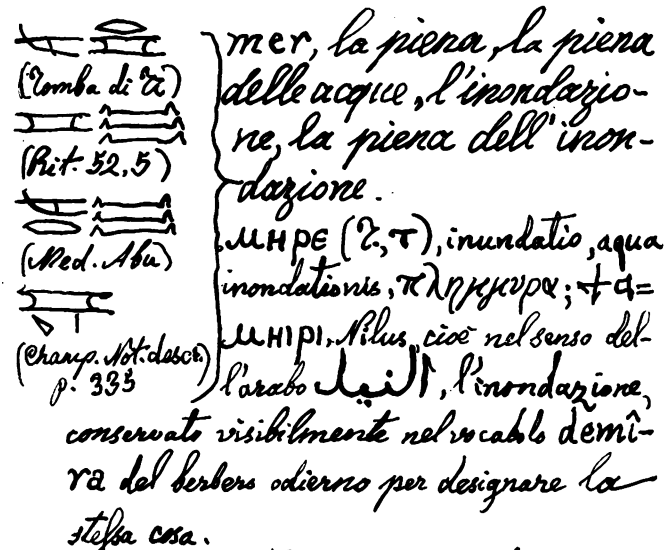 (Tomba di Ti)
(Rit. 52,5)
(Med. Abu)
(Champ. Not. descr.
p. 335)
mer, la piena, la piena
delle acque, l'inondazio-
ne, la piena dell'inon-
dazione.
ⲙⲏⲣⲉ (T., ⲧ), inundatio, aqua
inondationis, πλημμυρα;
ⲙⲏⲓⲣⲓ, Nilus, cioè nel senso del-
l'arabo النيل, l'inondazione,
conservato visibilmente nel vocabolo demî-
ra del berbero odierno per designare la
stessa cosa.